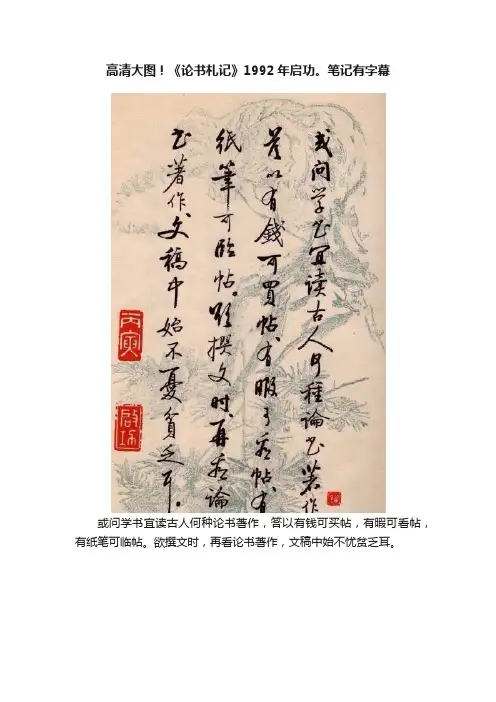 高清大图！《论书札记》1992年启功。笔记有字幕
或问学书宜读古人何种論书著作
荅以有錢可買帖，有暇可看帖，有
紙筆可临帖。欲撰文时，再看論
书著作，文稿中始不憂貧乏耳。
丙寅
启功
或问学书宜读古人何种论书著作，答以有钱可买帖，有暇可看帖，
有纸笔可临帖。欲撰文时，再看论书著作，文稿中始不忧贫乏耳。